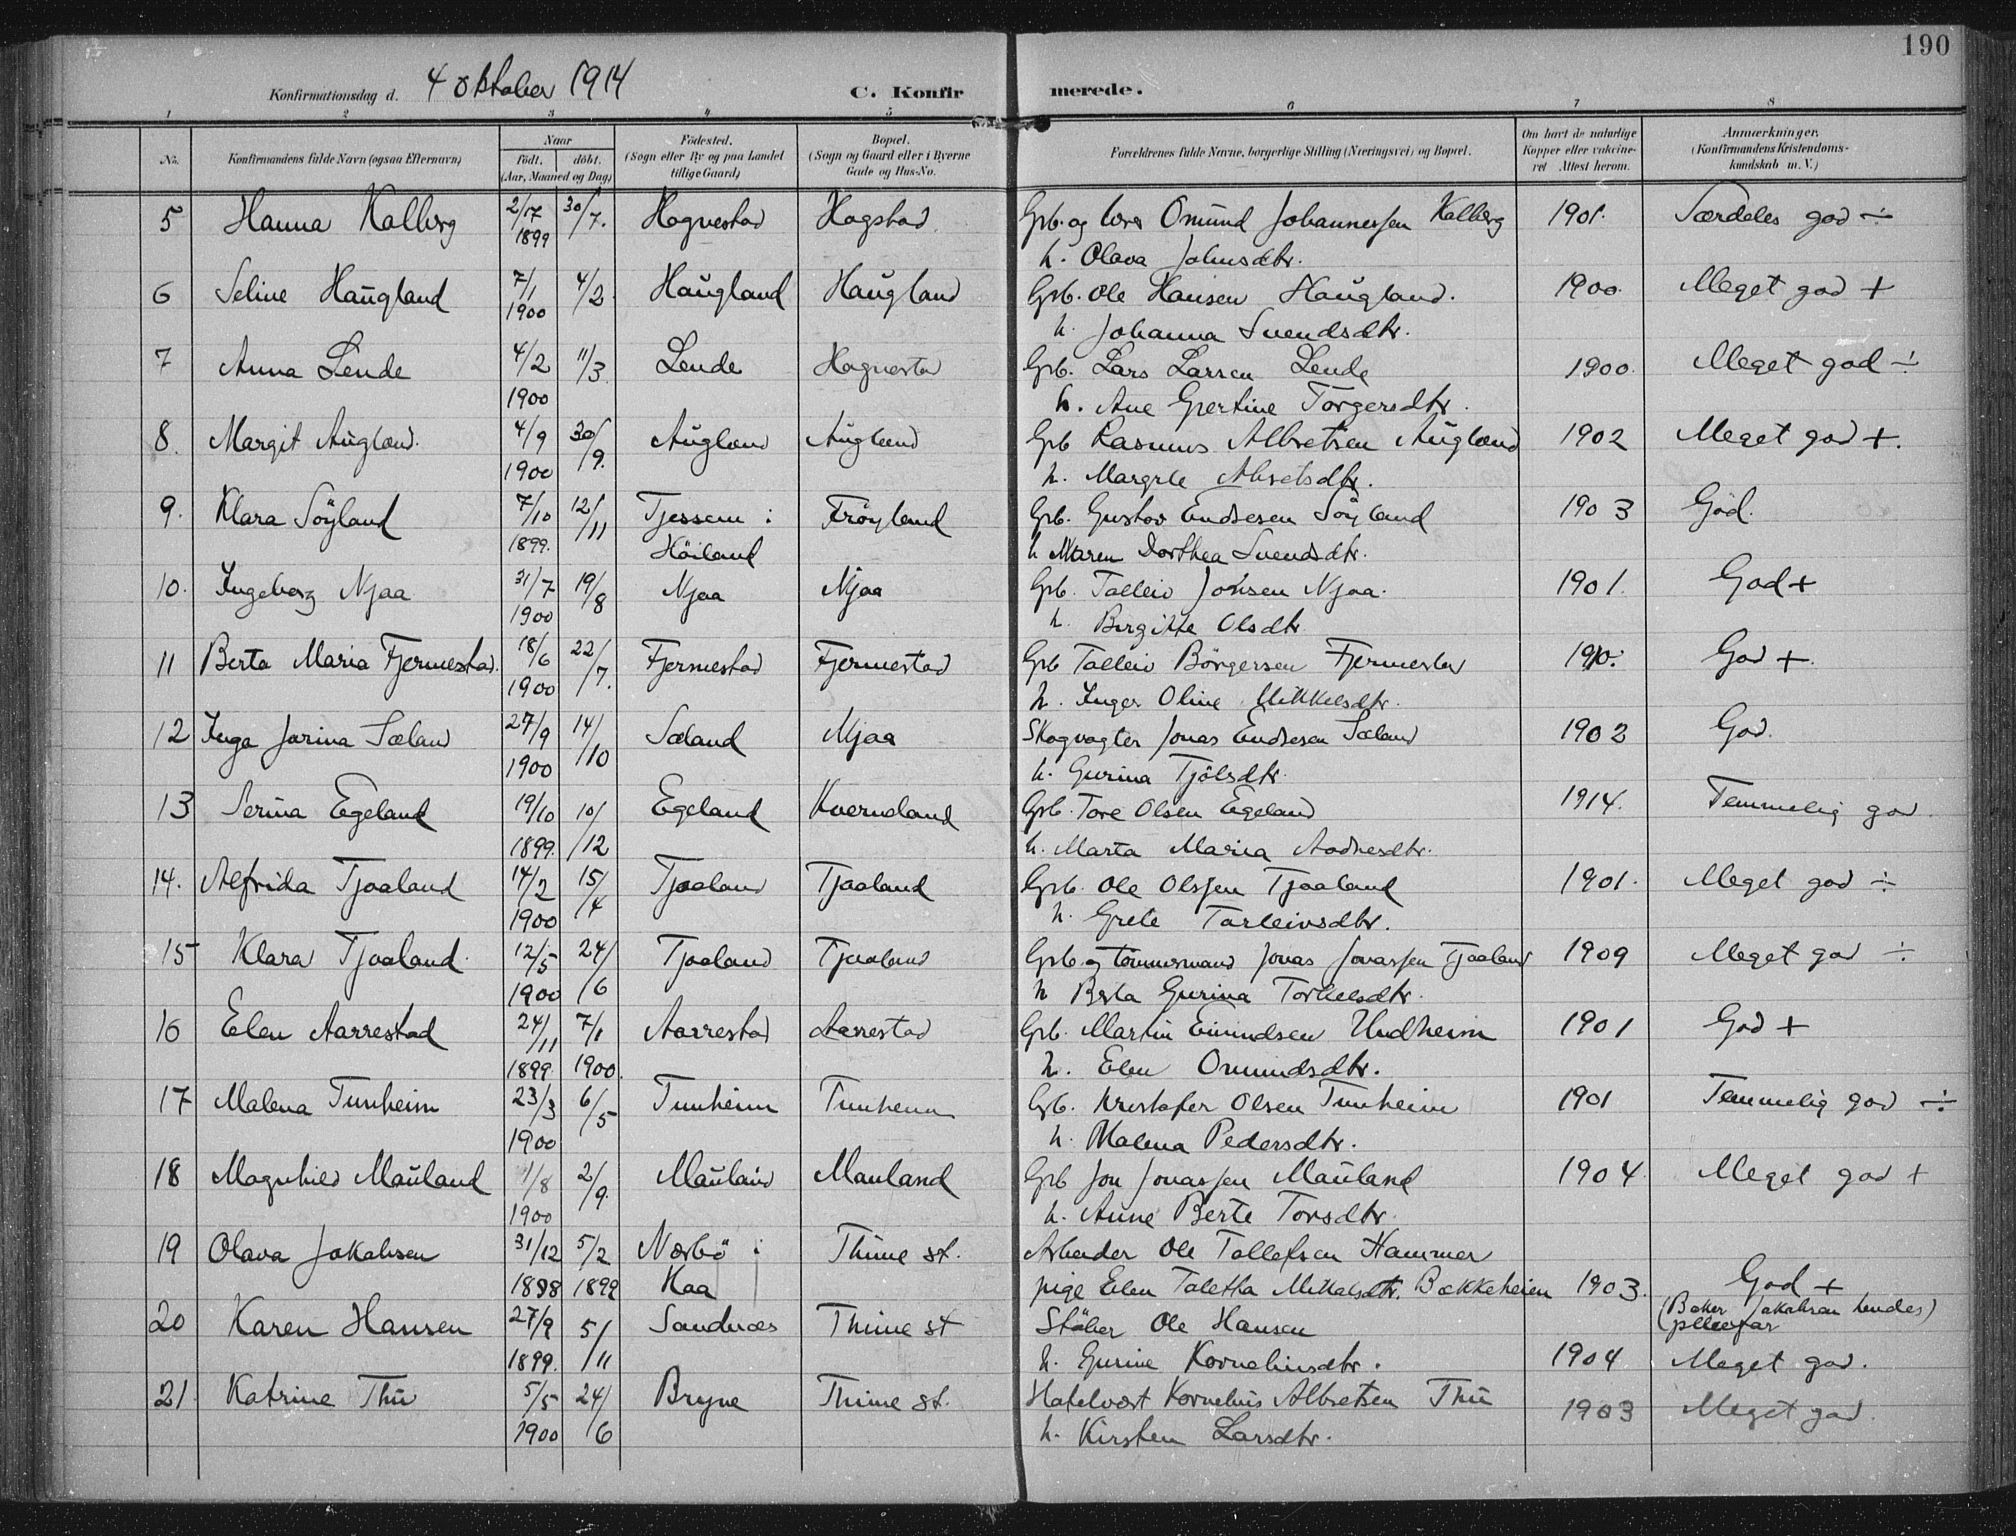 190
Konfirmationsdag d. 4 Oktober 1914 C. Konfirmerede.
1 2 3 4 5 6 7 8
No. Konfirmandens fulde Navn (ogsaa Efternavn) Naar født. døbt. (Aar, Maaned og Dag) Fødested. (Sogn eller By og paa Landet tillige Gaard) Bopæl. (Sogn og Gaard eller i Byerne Gade og Hus-No. Forældrenes fulde Navne, borgerlige Stilling (Næringsvei) og Bopæl. Om havt de naturlige Kopper eller vaksineret Attest herom. Anmærkninger. (Konfirmandens Kristendomskundskab m. V.)
5 Hanna Kalberg 2/17 30/7. Hognestad Hogstad Grb. og Omund Johannessen Kalberg 1901. Særdeles god ÷
1899 h. Olava Johnsdtr.
6 Seline Haugland 7/1 4/2 Haugland Haugland Grb. Ole Hansen Haugland. 1900. Meget god +
1900 h. Johanna Svendsdtr.
7 Anna Lende 4/2 11/3 Lende Hognesta Grb. Lars Larsen Lende 1900 Meget god ÷
1900 h. Ane Gjertine Torgersdtr.
8. Margit Augland. 4/9 30/9. Augland Augland Grb Rasmus Albretsen Augland 1902 Meget god +.
1900 h. Margrete
9. Klara Söyland 7/10 12/11 Tjessem i Fröyland Grb. Gustav Endresen Söyland 1903 God.
1899. Höiland h Maren Dorthea Svendsdtr.
10. Ingeborg Njaa 31/7 19/8 Njaa Njaa Grb. Talleiv Jonsen Njaa. 1901. God +
1900 h. Birgitte Olsdtr
11 Berta Maria Fjermestad. 18/6 22/7. Fjermestad Fjermestad Grb Talleiv Börgersen Fjermestad God +.
1900 h. Inger Oline Mikkelsdtr.
12 Inga Jorina Sæland 27/9 14/10 Sæland Njaa Skogvogter Jonas Endresen Sæland 1902 God.
1900 h. Gurina Tjölsdtr.
13 Serina Egeland 19/10 10/12 Egeland Kverneland Grb. Tore Olsen Egeland 1914. Temmelig god
1899. h. Marta Maria Aadnesdtr.
14. Alfrida Tjaaland 14/2 15/4 Tjaaland Tjaaland Grb. Ole Olsen Tjaaland 1901. Meget god ÷
1900 h. Grete Tarleivsdtr.
15 Klara Tjaaland. 12/5 24/6 Tjaaland Tjaaland Grb. og tömmermand Jonas Jonassen Tjaaland 1909 Meget god ÷
1900 h Berta Gurina Torkelsdtr.
16 Elen Aarrestad 24/11 7/1 Aarrestad Aarrestad Grb. Martin Eimundsen Undheim 1901 God +
1899. 1900. h. Elen Omundsdtr.
17 Malena Tunheim 23/3 6/5 Tunheim Tunheim Grb. Kristofer Olsen Tunheim 1901 Temmelig god ÷
1900 h. Malena Pedersdtr.
18 Magnhild Mauland 1/8 2/9. Mauland Mauland Grb Jon Jonassen Mauland 1904. Meget god +
1900 h. Anne Berte Torsdtr.
19 Olava Jakobsen 31/12 5/2 Nærbö i Thime st. Arbeider Ole Tollefsen Hammer
1898 1899 Haa pige Elen Taletta Mikkalsdtr. Bakkeheien 1903. God +
20 Karen Hansen 27/9 5/11 Sandnæs Thime st Stöber Ole Hansen (Baker Jakobsen hendes) pleiefar
1899. h. Gurine Korneliusdtr. 1904 Meget god.
21. Katrine Thu 5/5 24/6 Bryne Thime st. Hotelvert Kornelius Albretsen Thu 1903 Meget god
1900 h. Kirsten Larsdtr.